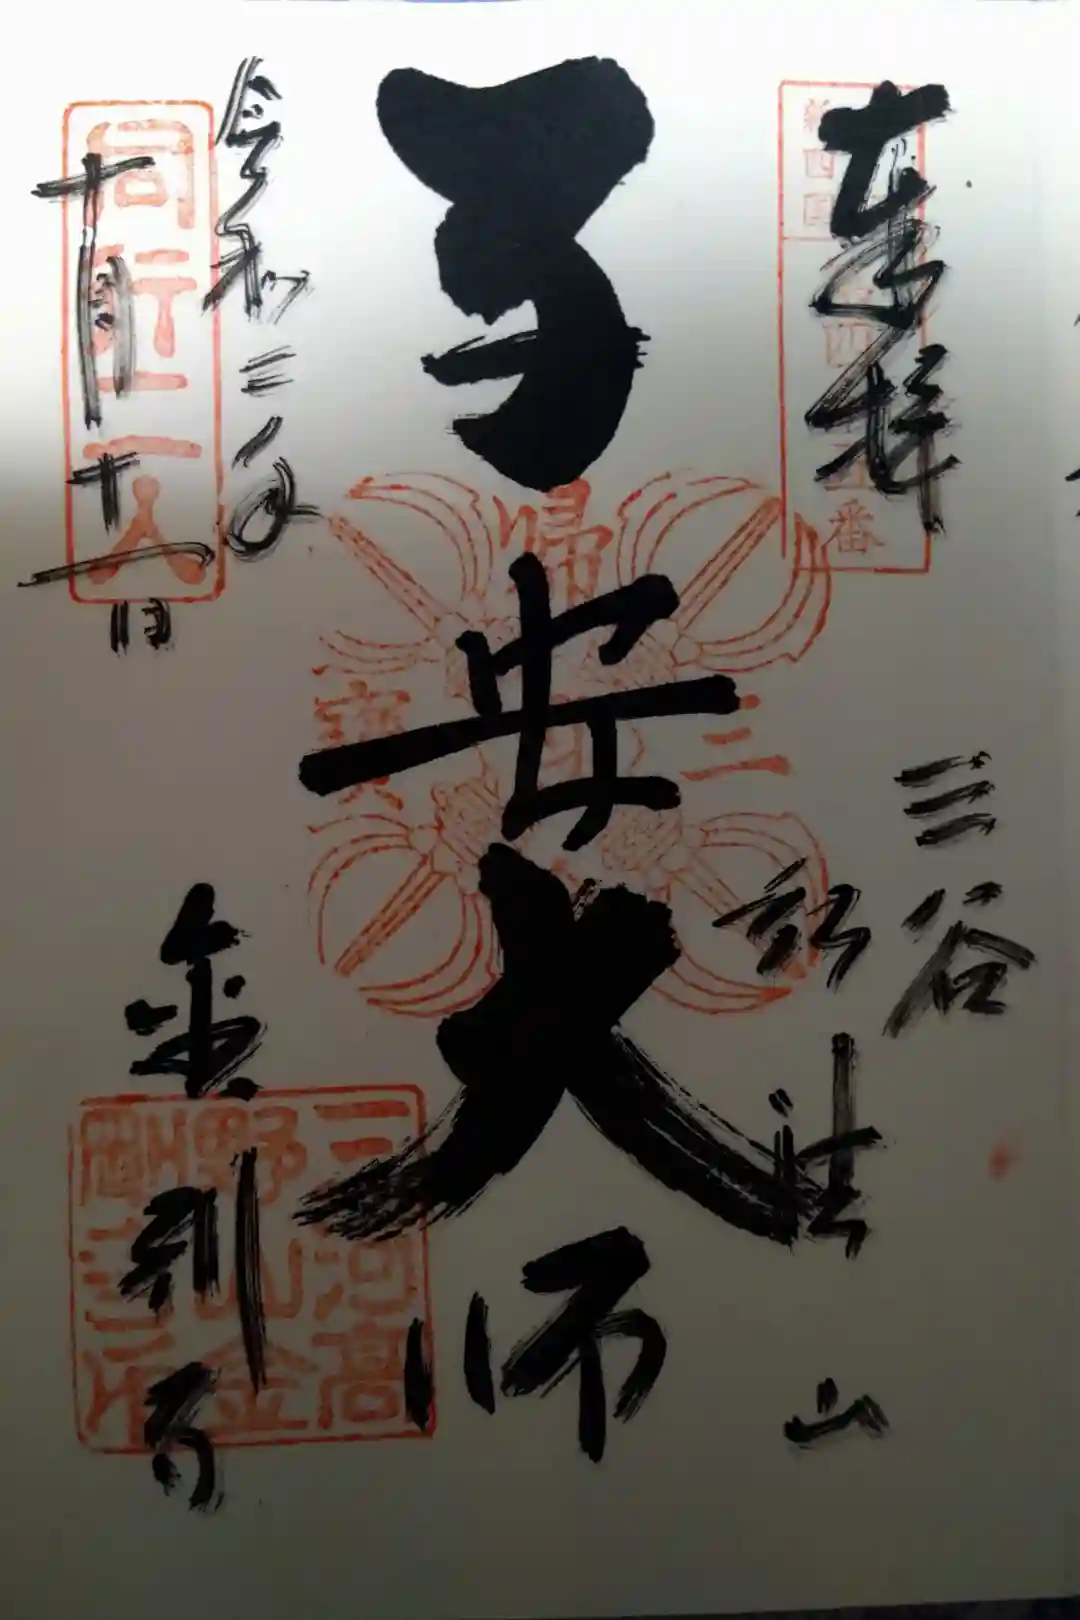 奉拝
三谷
弘法山
子安大師
令和三年
十月十一日
金剛寺
新四国
番
同行二人
歸
三
寳
三河高
野山金
剛寺印